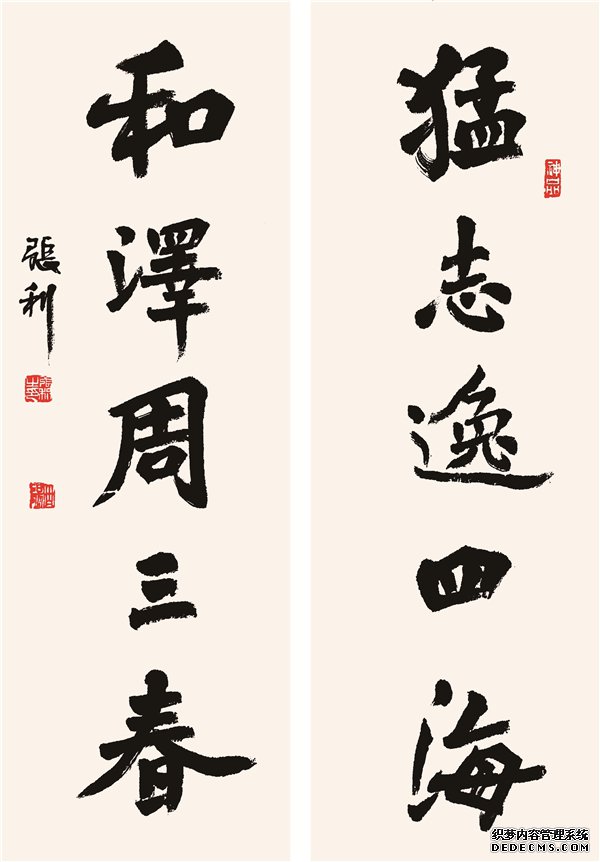 猛志逸四海
和澤周三春
張利
织梦内容管理系统
DEDECMS.COM